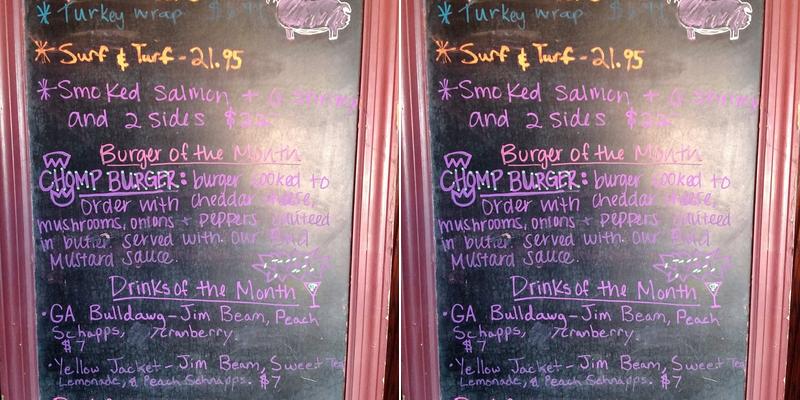 * Turkey wrap
* Surf & Turf - 21.95
* Smoked Salmon + 6 Shrimp
and 2 sides $22
Burger of the Month
CHOMP BURGER: burger cooked to
order with cheddar cheese,
mushrooms, onions + peppers sauteed
in butter served with our
Mustard sauce.
Drinks of the Month
• GA Bulldawg - Jim Beam, Peach
Schapps, cranberry
$7
• Yellow Jacket - Jim Beam, Sweet Tea
Lemonade, & Peach Schnapps. $7
* Turkey wrap
* Surf & Turf - 21.95
* Smoked Salmon + 6 Shrimp
and 2 sides $22
Burger of the Month
CHOMP BURGER: burger cooked to
order with cheddar cheese,
mushrooms, onions + peppers sauteed
in butter served with our
Mustard sauce.
Drinks of the Month
• GA Bulldawg - Jim Beam, Peach
Schapps, cranberry
$7
• Yellow Jacket - Jim Beam, Sweet Tea
Lemonade, & Peach Schnapps. $7